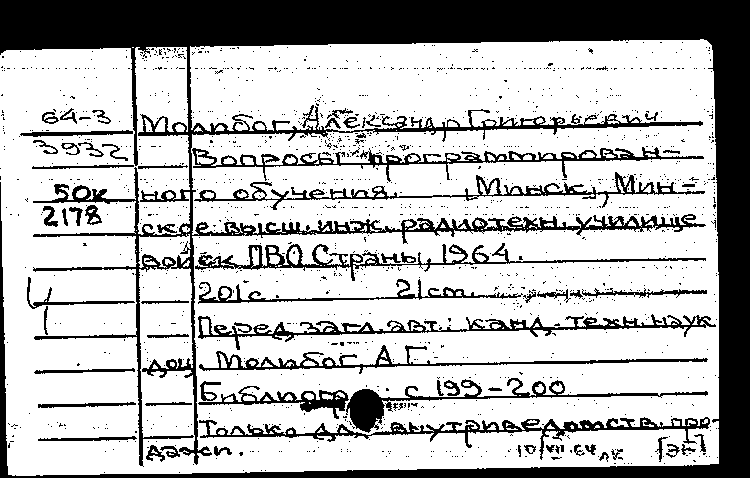 64-3 Молибог, Александр Григорьевич
3932 Вопросы программирован-
50к ного обучения. [Минск], Мин-
2178 ское высш. инж. радиотехн. училище
войск ПВО Страны, 1964.
201 с. 21 см.
Перед загл. авт.: канд. техн. наук
доц. Молибог, А.Г.
Библиогр. с 199-200
Только для внутриведомств. про-
дажи. 10/VII-64 [ЭБ]